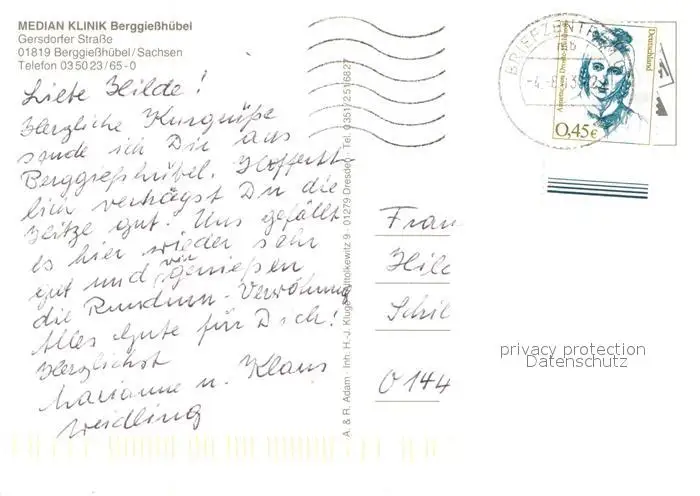 MEDIAN KLINIK Berggießhübel
Gersdorfer Straße
01819 Berggießhübel/Sachsen
Telefon 03 50 23/65-0
Liebe Hilde!
Herzliche Kurgrüße
sende ich Dir aus
Berggießhübel. Hoffent-
lich verträgst Du die
Hitze gut. Uns gefällt
es hier wieder sehr
gut und wir genießen
die Rundum-Verwöhnung
Alles Gute für Dich!
Herzlichst
Marianne u. Klaus
Weidling
A. & R. Adam · Inh. H.-J. Kluge · Wittolkewitz 9 · 01279 Dresden · Tel. 0351/2516827
BRIEFZENTRUM
Deutschland
0,45€
Frau
Hild
Schil
0144
privacy protection
Datenschutz